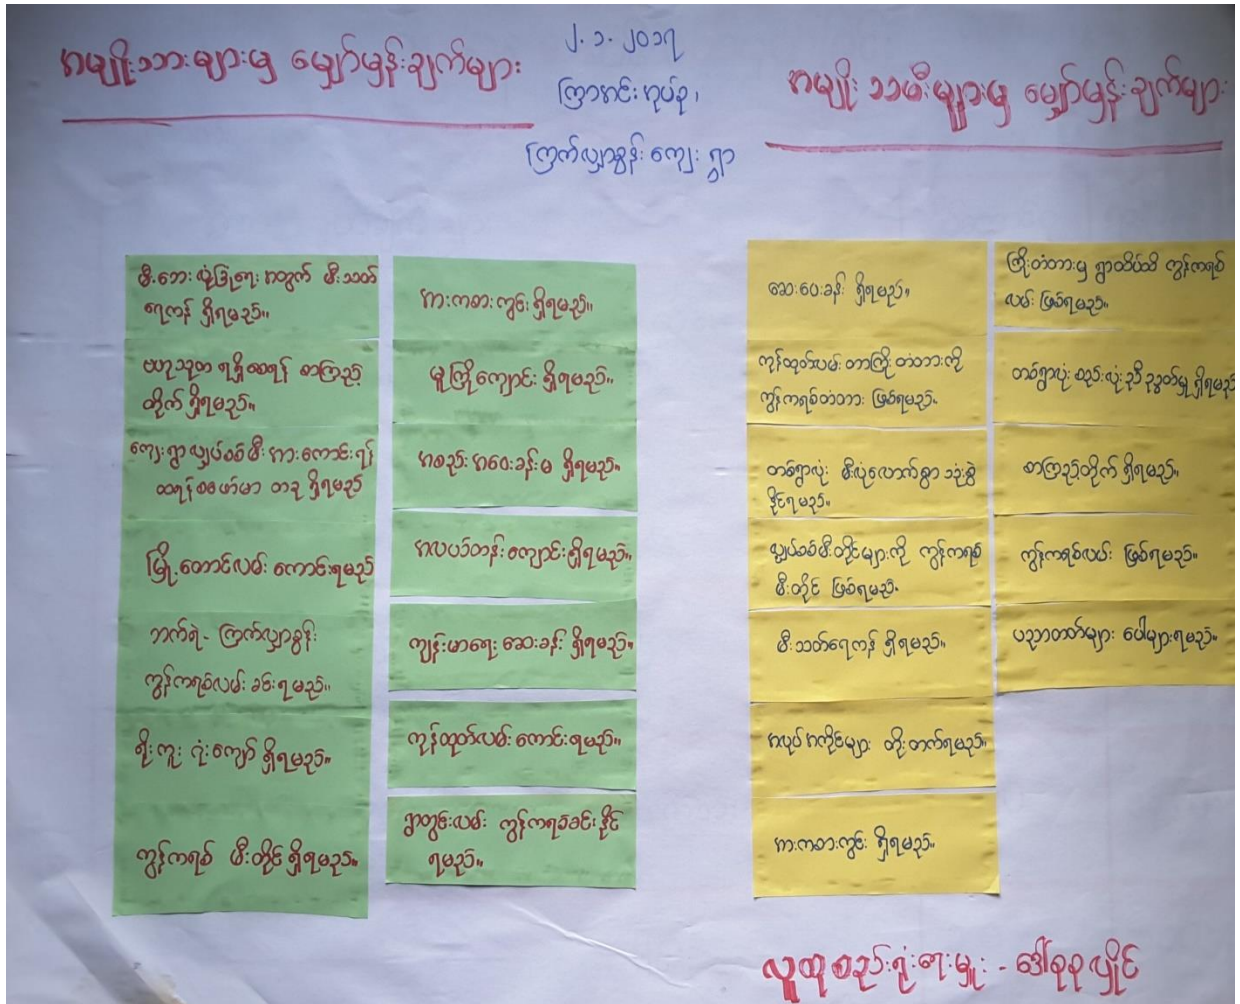 အမျိုးသားများမှ မျှော်မှန်းချက်များ
၂.၁.၂၀၁၇
ကြာအင်းအုပ်စု၊
ကြက်လျှာစွန်းကျေးရွာ
အမျိုးသမီးများမှ မျှော်မှန်းချက်များ
မီးဘေးလုံခြုံရေးအတွက် မီးသတ်
ရေကန် ရှိရမည်။
ဗဟုသုတ ရရှိစေရန် စာကြည့်
တိုက် ရှိရမည်။
ကျေးရွာလျှပ်စစ်မီးအားကောင်းရန်
ထရန်စဖော်မာ တခု ရှိရမည်
မြို့တောင်လမ်း ကောင်းရမည်
ဘက်ရဲ - ကြက်လျှာစွန်း
ကွန်ကရစ်လမ်းခင်းရမည်။
ရိုးကူး ဂုံးကျော် ရှိရမည်။
ကွန်ကရစ် မီးတိုင် ရှိရမည်။
အားကစားကွင်း ရှိရမည်။
မူကြိုကျောင်း ရှိရမည်။
အစည်းအဝေးခန်းမ ရှိရမည်။
အလယ်တန်းကျောင်းရှိရမည်။
ကျန်းမာရေး ဆေးခန်း ရှိရမည်။
ကုန်ထုတ်လမ်းကောင်းရမည်။
ရွာတွင်းလမ်း ကွန်ကရစ်ခင်းနိုင်
ရမည်။
ဆေးပေးခန်း ရှိရမည်။
ကုန်ထုတ်လမ်းတာကြိုးတံတားကို
ကွန်ကရစ်တံတား ဖြစ်ရမည်။
တစ်ရွာလုံး မီးလုံလောက်စွာ သုံးစွဲ
နိုင်ရမည်။
လျှပ်စစ်မီးတိုင်များကို ကွန်ကရစ်
မီးတိုင် ဖြစ်ရမည်။
မီးသတ်ရေကန် ရှိရမည်။
အလုပ်အကိုင်များ တိုးတက်ရမည်။
အားကစားကွင်း ရှိရမည်။
ကြိုးတံတားမှ ရွာထိပ်ထိ ကွန်ကရစ်
လမ်း ဖြစ်ရမည်။
တစ်ရွာလုံး စည်းလုံးညီညွတ်မှု ရှိရမည်
စာကြည့်တိုက် ရှိရမည်။
ကွန်ကရစ်လမ်း ဖြစ်ရမည်။
ပညာတတ်များ ပေါများရမည်။
လူထုစည်းရုံးရေးမှူး - ဒေါ်ခုခုလှိုင်